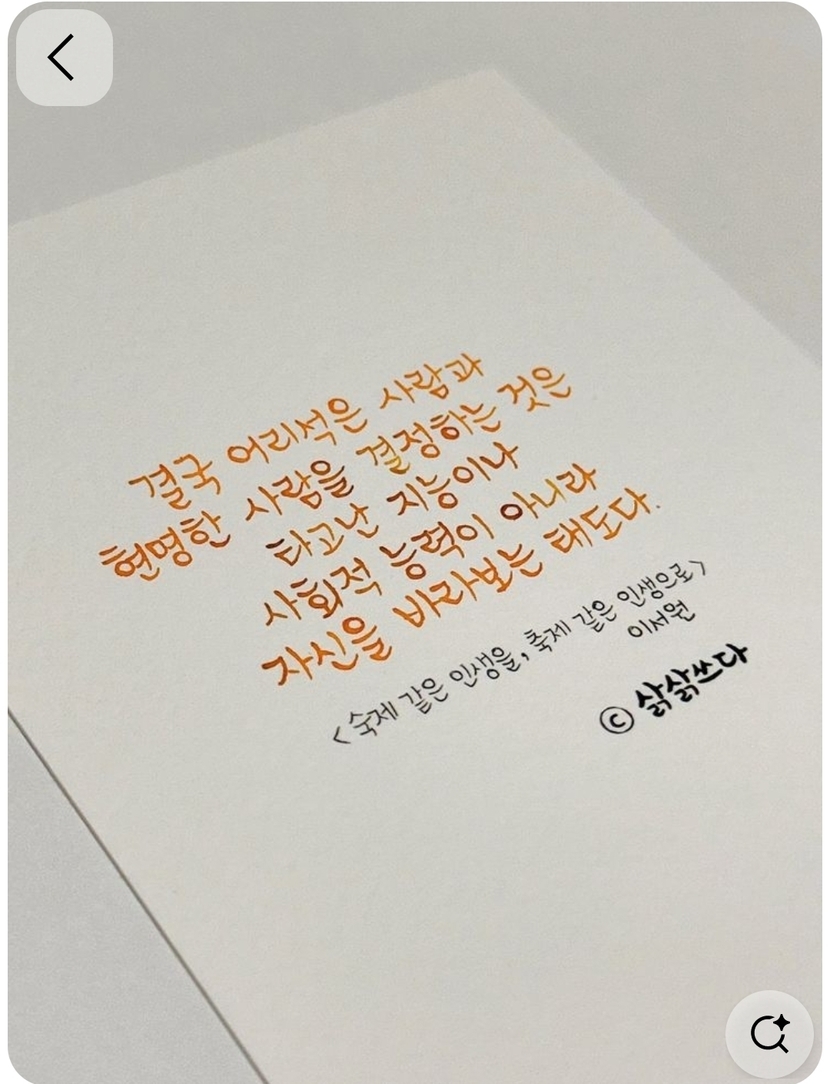 결국 어리석은 사람과
현명한 사람을 결정하는 것은
타고난 지능이나
사회적 능력이 아니라
자신을 바라보는 태도다.
<숙제 같은 인생을, 축제 같은 인생으로>
이서원
ⓒ 삶삶쓰다